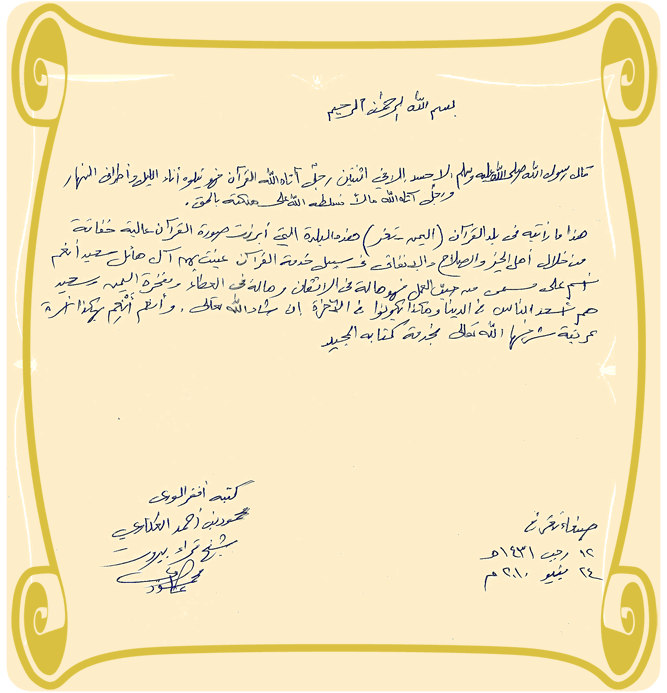 بسم الله الرحمن الرحيم
قال رسول الله صلى الله عليه وسلم لا حسد إلا في اثنتين رجل آتاه الله القرآن فهو يتلوه آناء الليل وأطراف النهار
ورجل آتاه الله مالا فسلطه الله على هلكته بالحق.
هذا ما رأيته في بلد القرآن (اليمن - تعز) هذه البلدة التي أبرزت صورة القرآن عالية خفاقة
من خلال أهل الخير والصلاح والإنفاق في سبيل خدمة القرآن عنيت بهم آل هائل سعيد أنعم
اسم على مسمى من حيث العمل فهو هالة في الإتقان وهالة في العطاء ومفخرة اليمن وسعيد
هم أسعد الناس في الدنيا وهكذا يكونوا في الآخرة إن شاء الله تعالى، وأنعم أنعم بهكذا
عريقة شرفها الله تعالى بخدمة كتابه المجيد
كتبه أفقر الورى
محمود بن أحمد العكاوي
شيخ قراء بيروت
محمود عكاوي
صنعاء تعز في
١٢ رجب ١٤٣١هـ
٢٤ يونيو ٢٠١٠م